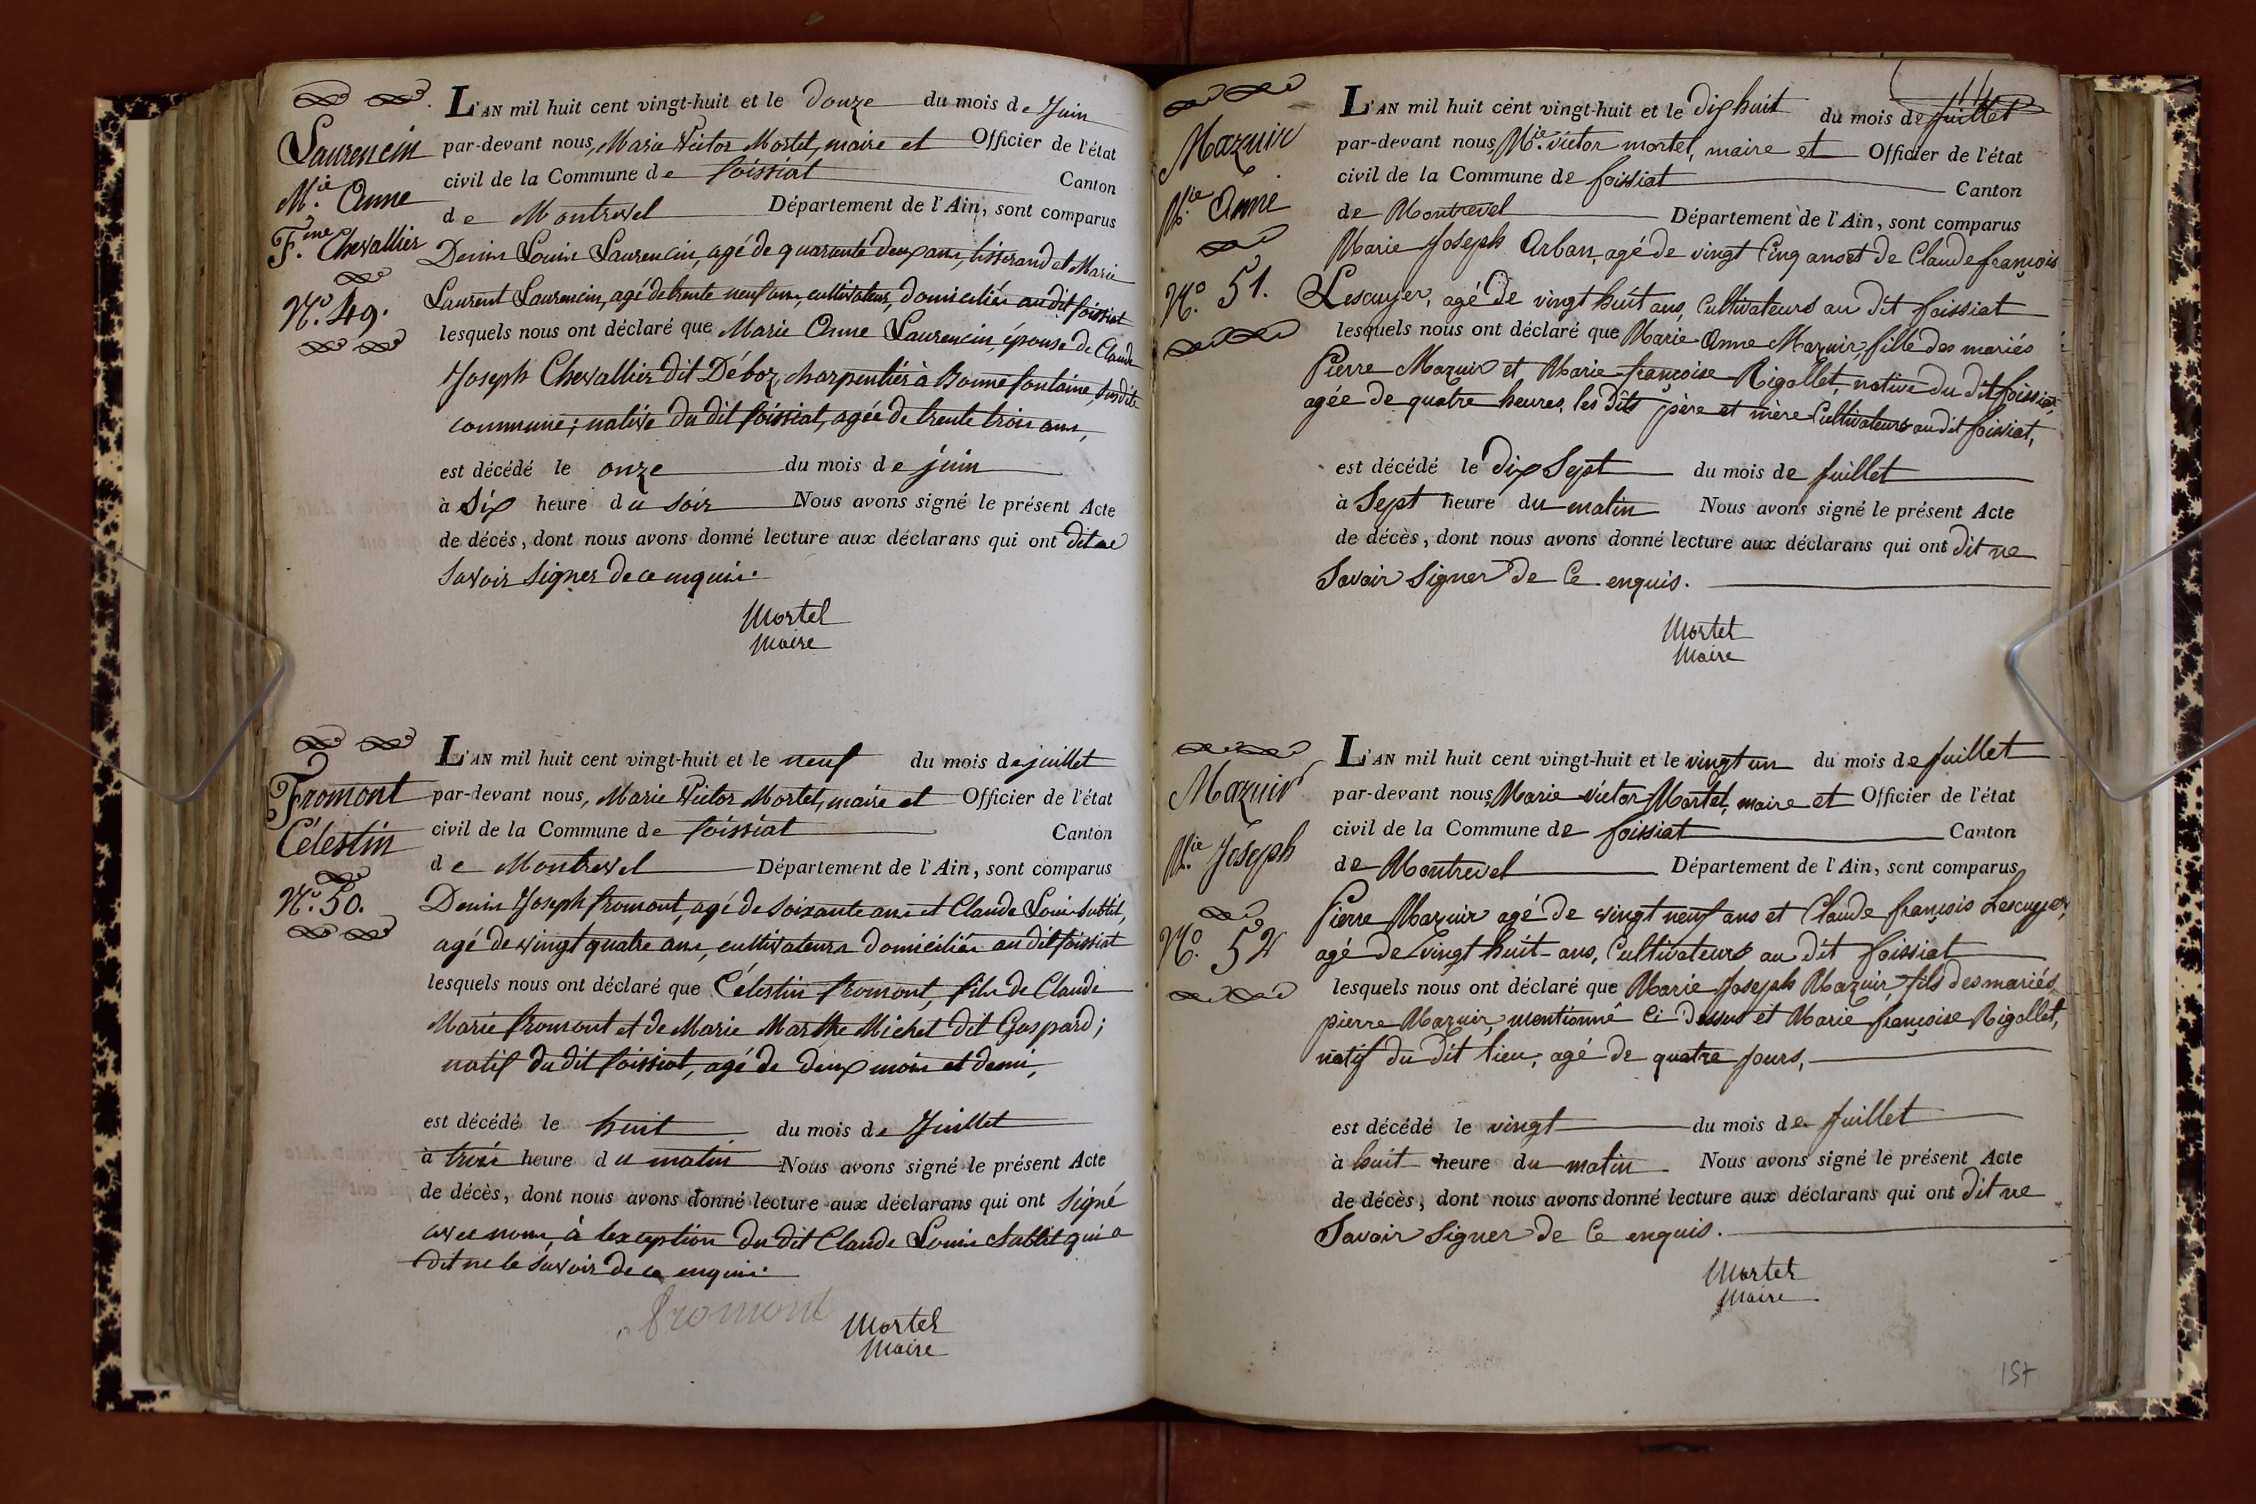 Laurencin
M.ie Anne
F.me Chevallier
N.o 49.
L'AN mil huit cent vingt-huit et le douze du mois de Juin
par-devant nous, Marie Victor Mortel, maire et Officier de l'état
civil de la Commune de foissiat Canton
de Montrevel Département de l'Ain, sont comparus
Denis Louis Laurencin, agé de quarante deux ans, tisserand et Marie
Laurent Laurencin, agé de trente neuf ans, cultivateur, domiciliés au dit foissiat
lesquels nous ont déclaré que Marie Anne Laurencin, épouse de Claude
Joseph Chevallier dit Déboz, charpentier à Bonnefontaine, susdite
commune; native du dit foissiat, agée de trente trois ans,
est décédé le onze du mois de juin
à Six heure du soir Nous avons signé le présent Acte
de décés, dont nous avons donné lecture aux déclarans qui ont dit ne
Savoir signer de ce enquis.
Mortel
Maire
Fromont
Célestin
N.o 50.
L'AN mil huit cent vingt-huit et le neuf du mois de juillet
par-devant nous, Marie Victor Mortel, maire et Officier de l'état
civil de la Commune de foissiat Canton
de Montrevel Département de l'Ain, sont comparus
Denis Joseph fromont, agé de Soixante ans et Claude Louis Sublit,
agé de vingt quatre ans, cultivateurs domiciliés au dit foissiat
lesquels nous ont déclaré que Célestin fromont, fils de Claude
Marie fromont et de Marie Marthe Michel dit Gaspard;
natif du dit foissiat, agé de deux mois et demi,
est décédé le huit du mois de Juillet
à trois heure du matin Nous avons signé le présent Acte
de décès, dont nous avons donné lecture aux déclarans qui ont signé
avec nous, à l'exception du dit Claude Louis Sublit qui a
dit ne le savoir de ce enquis.
fromont
Mortel
Maire
14
Mazuir
M.ie Anne
N.o 51.
L'AN mil huit cent vingt-huit et le dix huit du mois de juillet
par-devant nous, M.ie victor mortel, maire et Officier de l'état
civil de la Commune de foissiat Canton
de Montrevel Département de l'Ain, sont comparus
Marie Joseph Arban, agé de vingt Cinq ans et de Claude françois
Lescuyer, agé de vingt huit ans, Cultivateurs au dit foissiat
lesquels nous ont déclaré que Marie Anne Mazuir, fille des mariés
Pierre Mazuir et Marie françoise Rigollet, native du dit foissiat,
agée de quatre heures, les dits père et mère Cultivateurs au dit foissiat,
est décédé le dix Sept du mois de juillet
à Sept heure du matin Nous avons signé le présent Acte
de décès, dont nous avons donné lecture aux déclarans qui ont dit ne
Savoir Signer de Ce enquis.
Mortel
Maire
Mazuir
M.ie Joseph
N.o 52
L'AN mil huit cent vingt-huit et le vingt un du mois de juillet
par-devant nous, Marie victor Mortel, maire et Officier de l'état
civil de la Commune de foissiat Canton
de Montrevel Département de l'Ain, sont comparus
Pierre Mazuir agé de vingt neuf ans et Claude françois Lescuyer,
agé de vingt huit ans, Cultivateurs au dit foissiat
lesquels nous ont déclaré que Marie Joseph Mazuir, fils des mariés
pierre Mazuir, mentionné Ci Dessus et Marie françoise Rigollet,
natif du dit lieu, agé de quatre jours,
est décédé le vingt du mois de juillet
à huit heure du matin Nous avons signé le présent Acte
de décès, dont nous avons donné lecture aux déclarans qui ont dit ne
Savoir Signer de Ce enquis.
Mortel
Maire